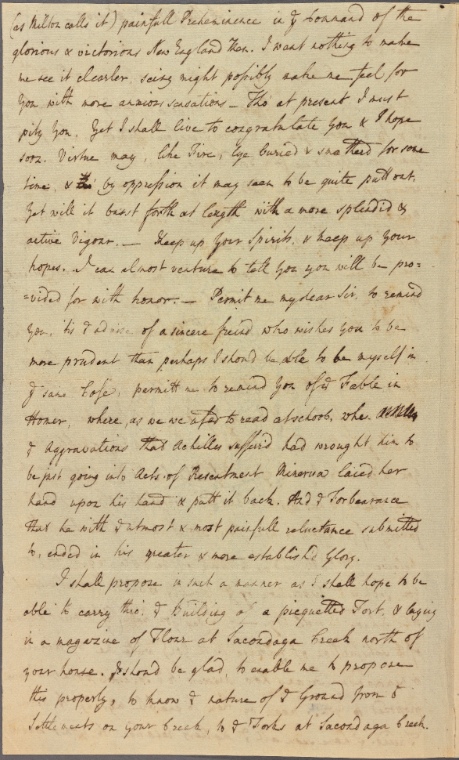 (as Milton calls it) painfull Preheminence in ye Command of the
glorious & victorious New England Men. I want nothing to make
me see it clearler, seing might possibly make me feel for
You with more anxious sensations — Tho' at present I must
pity You. Yet I shall live to congratulate You & I hope
soon. Virtue may, like Fire, lye buried & smotherd for some
time, & by oppression it may seem to be quite putt out,
Yet will it burst forth at length with a more splendid &
active Vigour. — Keep up Your Spirits, & keep up Your
hopes. I can almost venture to tell You you will be pro=
=vided for with honor. — Permit me my dear Sir, to remind
You, 'tis ye advice of a sincere freind who wishes You to be
more prudent than perhaps I should be able to be myself in
ye same Case, permitt me to remind You of ye Fable in
Homer, where, as we we used to read at school, when
ye Aggravations that Achilles suffer'd had wrought him to
be just going into Acts of Resentment Minerva laied her
hand upon his hand & putt it back. And ye Forbearance
that he with ye utmost & most painfull reluctance submitted
to, ended in his greater & more establish'd Glory.
I shall propose in such a manner as I shall hope to be
able to carry thro' ye building of a picquetted Fort, & laying
in a magazine of Flour at Sacondaga Creek north of
your house. I should be glad, to enable me to propose
this properly, to know ye nature of ye Ground from ye
Settlements on your Creek, to ye Forks at Sacondaga Creek.